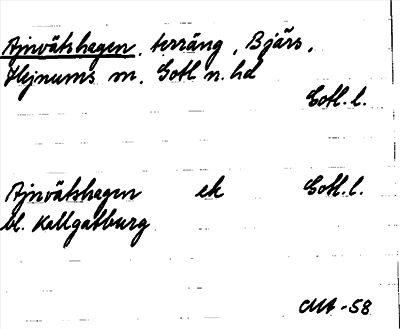 Ajnvätshagen, terräng, Bjärs,
Hejnums m. Gotl n. hd
Gotl. l.
Ajnvätshagen ek Gotl. l.
bl. Kallgatburg
MA -58